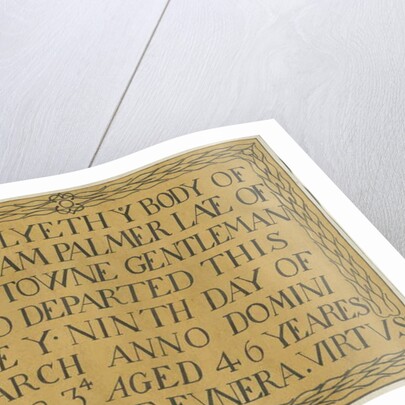 LYETH Y BODY OF
AM PALMER LATE OF
TOWNE GENTLEMAN
O DEPARTED THIS
E Y · NINTH DAY OF
ARCH ANNO DOMINI
3 4 AGED 46 YEARES
EVNERA · VIRTVS